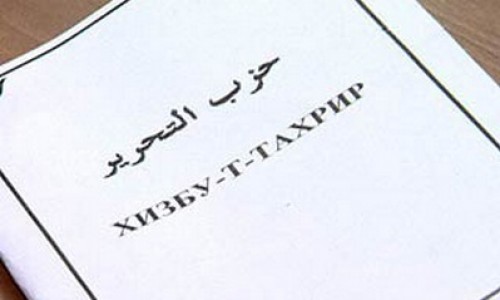 حزب التحرير
ХИЗБУ-Т-ТАХРИР